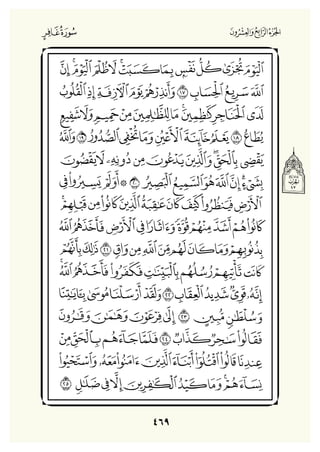 الجزء الرابع والعشرون
سورة غافر
اليوم تجزى كل نفس بما كسبت لا ظلم اليوم إن
الله سريع الحساب ١٧ وأنذرهم يوم الآزفة إذ القلوب
لدى الحناجر كاظمين ما للظالمين من حميم ولا شفيع
يطاع ١٨ يعلم خائنة الأعين وما تخفي الصدور ١٩ والله
يقضي بالحق والذين يدعون من دونه لا يقضون
بشيء إن الله هو السميع البصير ٢٠ أولم يسيروا في
الأرض فينظروا كيف كان عاقبة الذين كانوا من قبلهم
كانوا هم أشد منهم قوة وآثارا في الأرض فأخذهم الله
بذنوبهم وما كان لهم من الله من واق ٢١ ذلك بأنهم
كانت تأتيهم رسلهم بالبينات فكفروا فأخذهم الله
إنه قوي شديد العقاب ٢٢ ولقد أرسلنا موسى بآياتنا
وسلطان مبين ٢٣ إلى فرعون وهامان وقارون
فقالوا ساحر كذاب ٢٤ فلما جاءهم بالحق من
عندنا قالوا اقتلوا أبناء الذين آمنوا معه واستحيوا
نساءهم وما كيد الكافرين إلا في ضلال ٢٥
٤٦٩